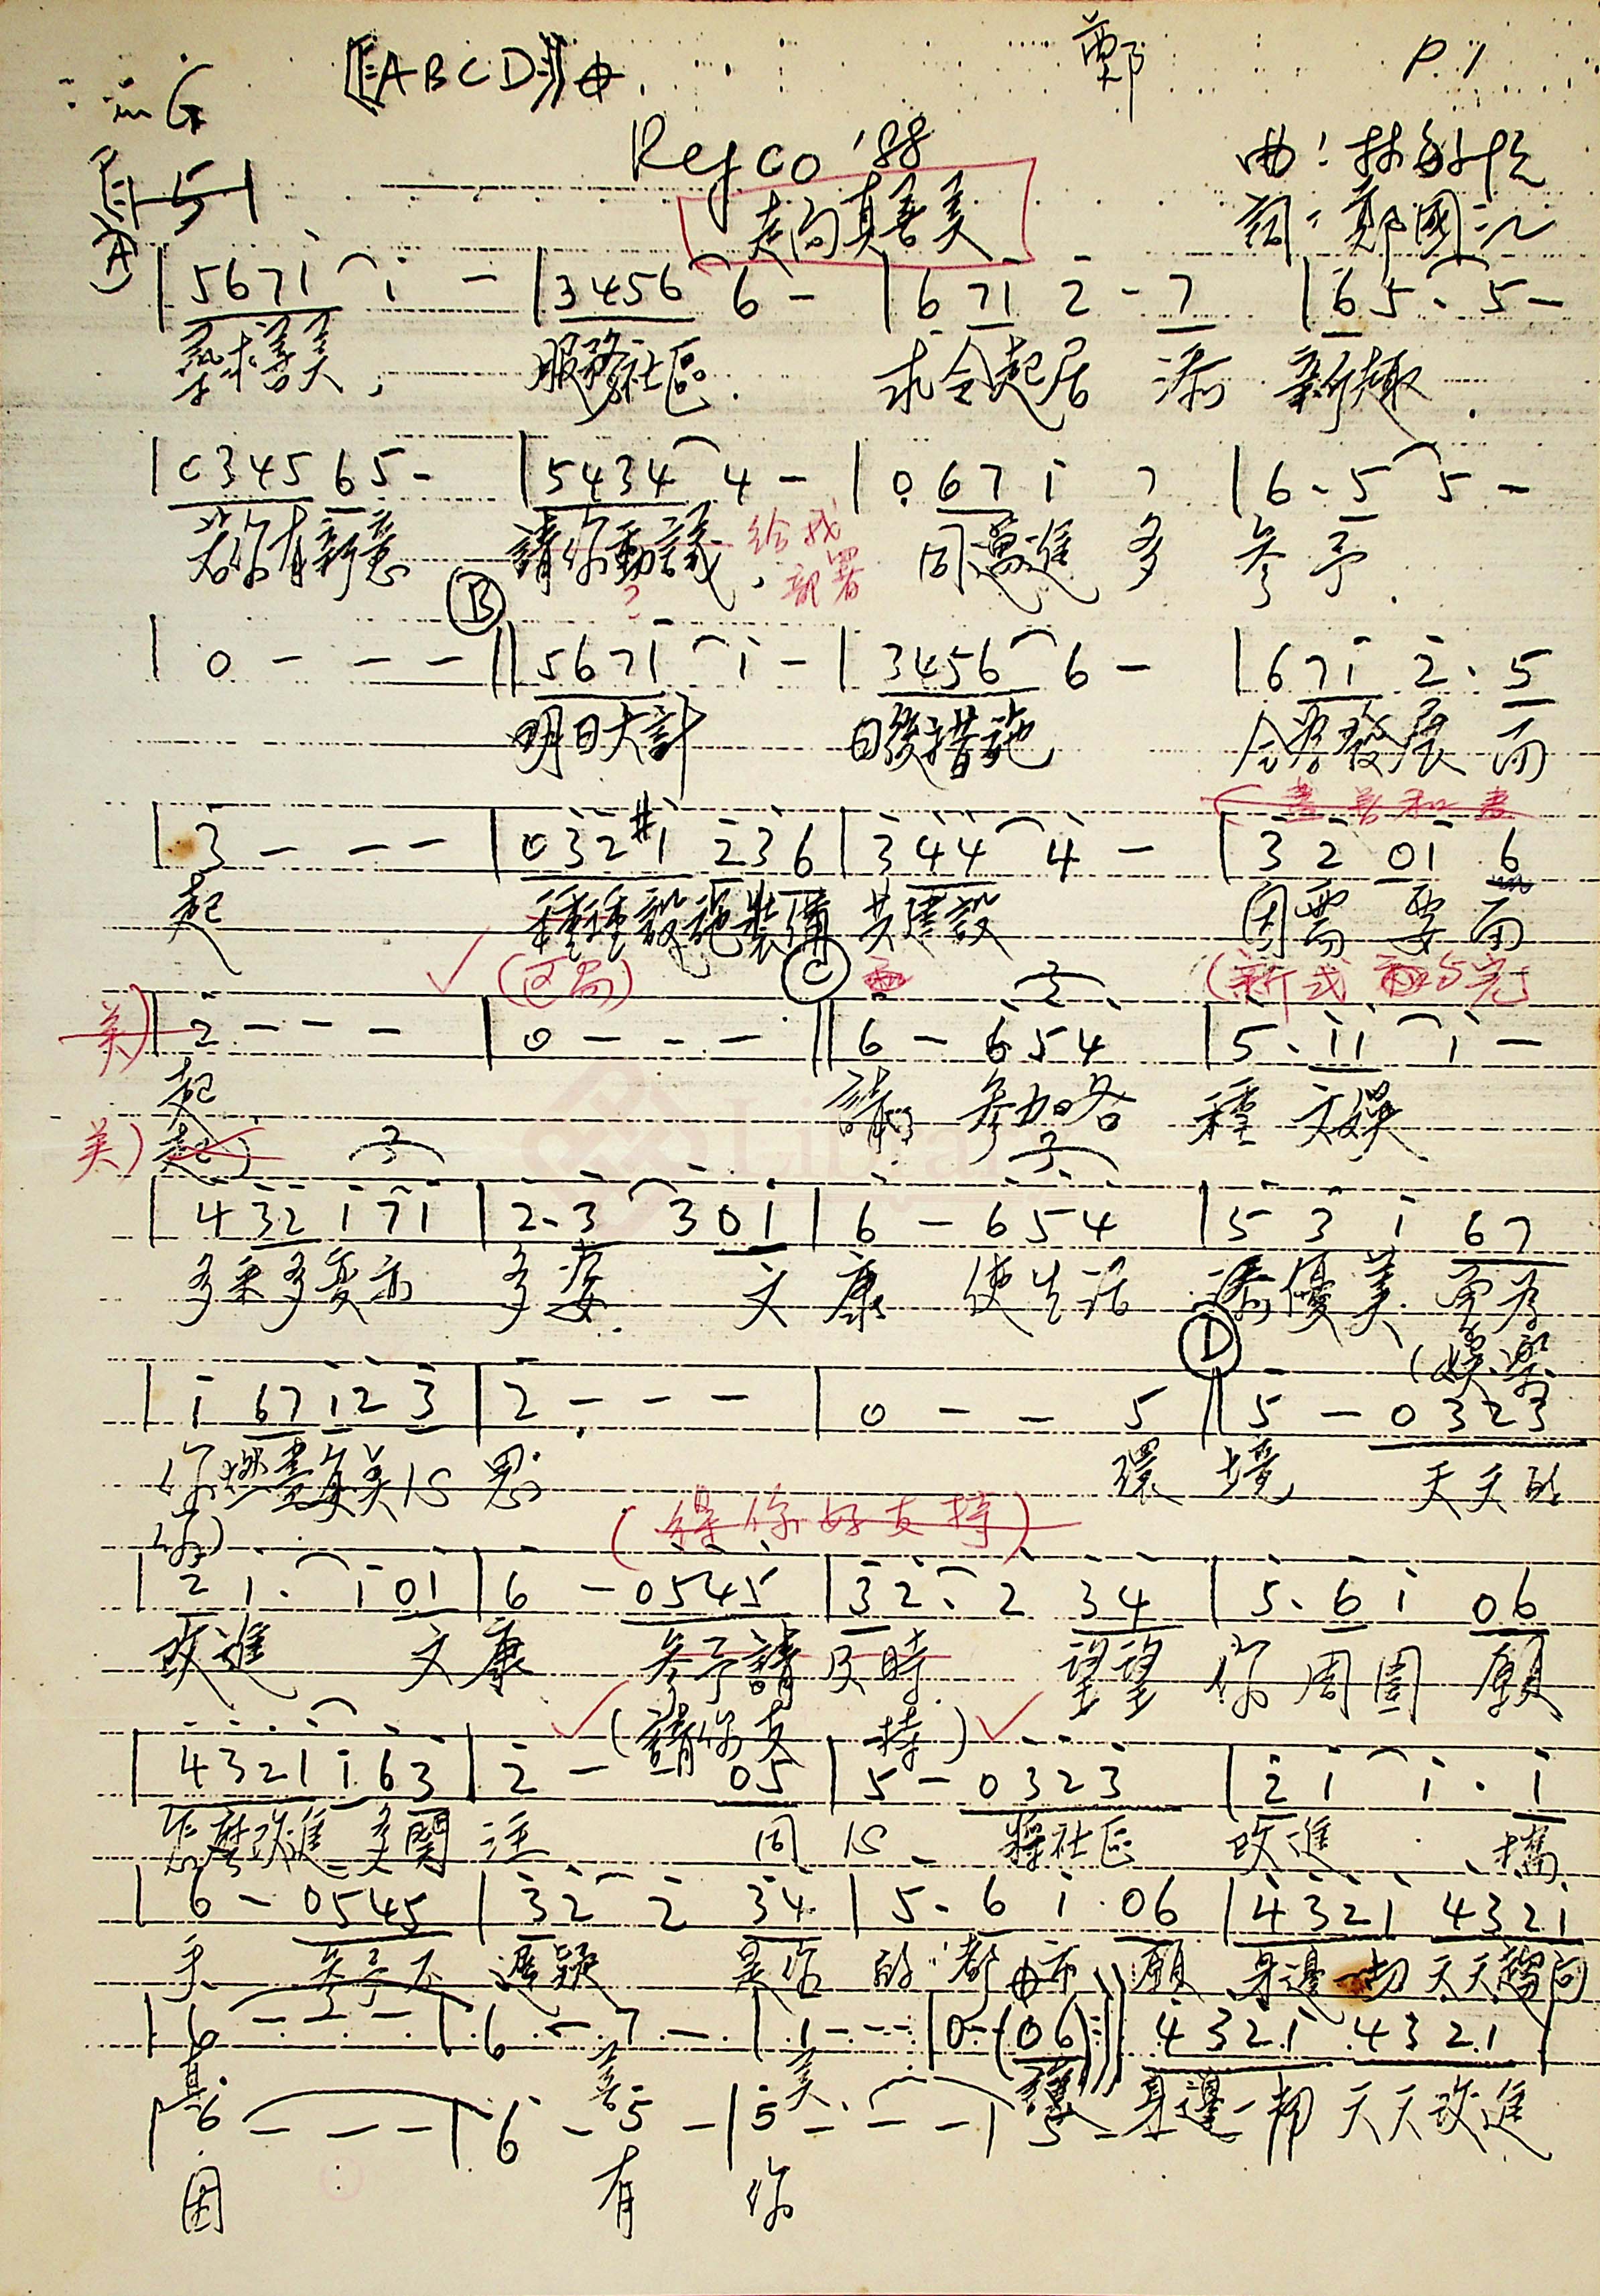 in G 〚:ABCD:〛 鄭 P.1
Refco '88 曲:林敏怡
走向真善美 詞:鄭國江
A
| 5671 1 - | 3456 6 - | 671 2 - 7 | 65 . 5 -
熱求善美, 服務社區. 求令起居 添 新趣.
| 0345 65 - | 5434 4 - | 0 67 1 7 | 6 . 5 5 -
若你有新意 請你動議, 給我部署 同邁進 多 參予.
B
| 0 - - - || 5671 1 - | 3456 6 - | 671 2 . 5
明日大計 日後措施 全為發展 而
| 3 - - - | 032#1 236 | 344 4 - | 3 2 01 6
起 種種設施裝備 共建設 因需要而
(新式
C
美) | 2 - - - | 0 - - - || 6 - 654 | 5 . 11 1 -
起 請 參加各 種 文娛
美) 起)
| 4 32 1 71 | 2 . 3 3 01 | 6 - 654 | 5 3 1 67
多采多變示 多姿. 文 康 使生活 添優美
D (娛樂
| 1 67 12 3 | 2 - - - | 0 - - 5 || 5 - 0323
你 心思 環 境 天天的
(得你好支持)
| 2 1 . 1 01 | 6 - 0545 | 32 . 2 34 | 5 . 6 1 06
改進 文康 參予請及時 望望 你周圍 願
(請你支 持)
| 4321 163 | 2 - 05 | 5 - 0323 | 2 1 1 . 1
怎麼改進多關注 同心 將社區 改進 . 攜
| 6 - 0545 | 32 2 34 | 5 . 6 1 . 06 | 4321 4321
手 參予不 遲疑 是你 的都市 願 身邊一切天天趨向
| 6 - - - | 6 - 7 - | 1 - - - | 0 - (06) :|| 4321 4321
真 善 美. 讓 身邊一切 天天改進
| 6 - - - | 6 - 5 - | 5 - - - | 5 -
因 有 你